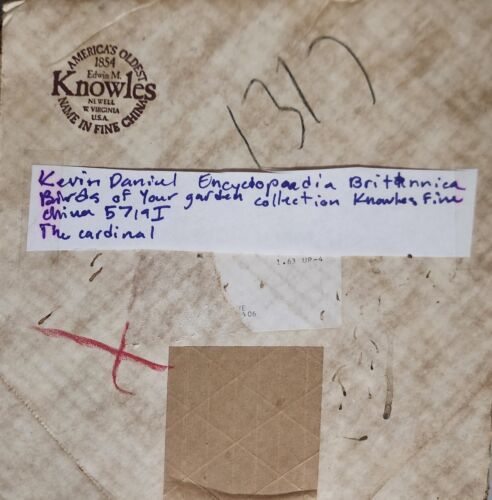 AMERICA'S OLDEST
1854
Edwin M.
Knowles
NEWELL
W VIRGINIA
U.S.A.
NAME IN FINE CHINA
1317
Kevin Daniel Encyclopaedia Britannica
Birds of Your garden collection Knowles Fine
china 5719I
The cardinal
1.63 UP-4